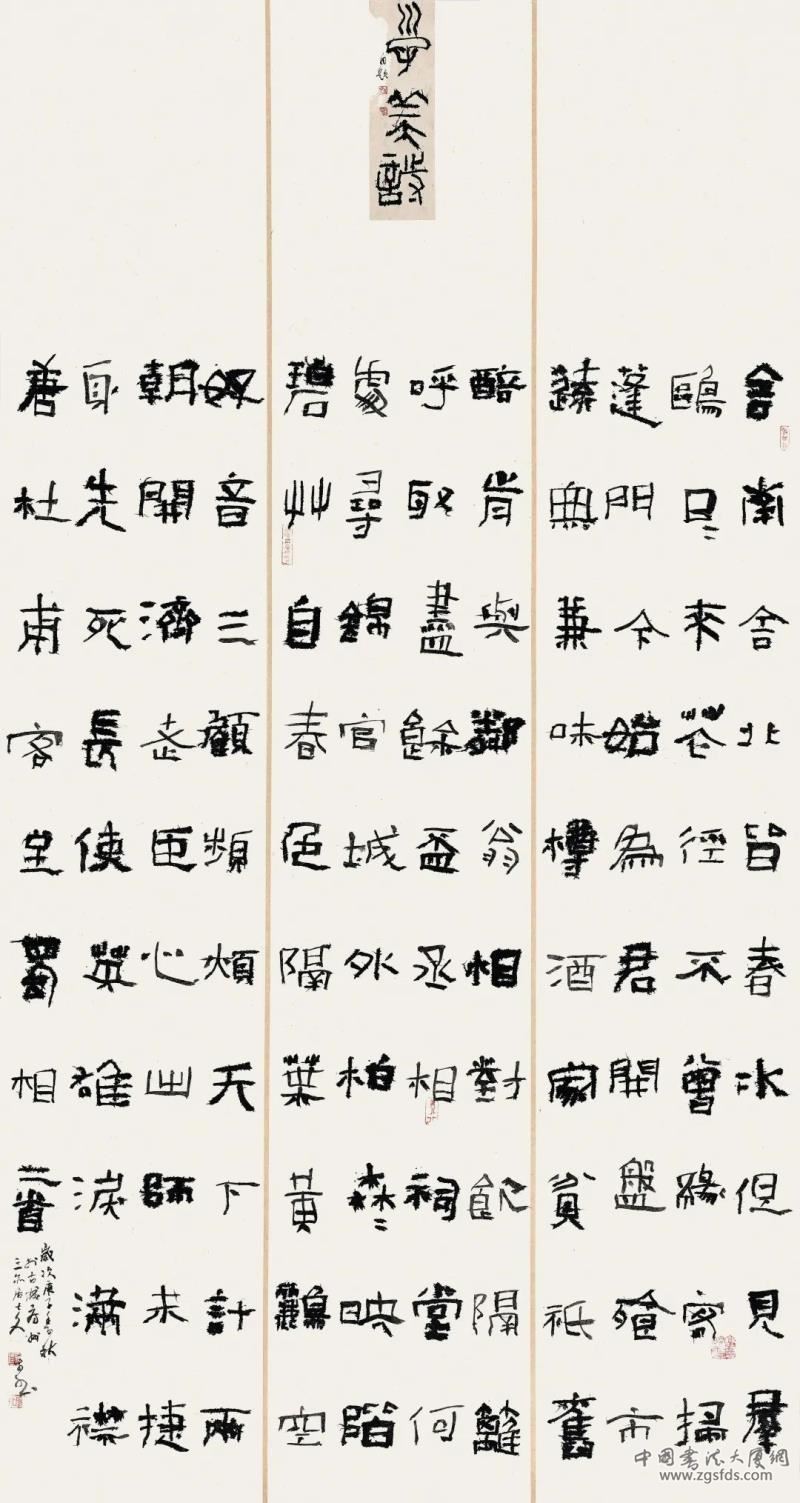 舍南舍北皆春水但見羣
鷗日〻來花徑不曾緣客掃
蓬門今始為君開盤飧市
遠無兼味樽酒家貧祇舊
醅肯與鄰翁相對飲隔籬
呼取盡餘盃丞相祠堂何
處尋錦官城外柏森〻映階
碧艸自春色隔葉黃鸝空
好音三顧頻煩天下計兩
朝開濟老臣心出師未捷
身先死長使英雄淚滿襟
唐杜甫客至蜀相二首
歲次庚子
中國書法大廈網
www.zgsfds.com